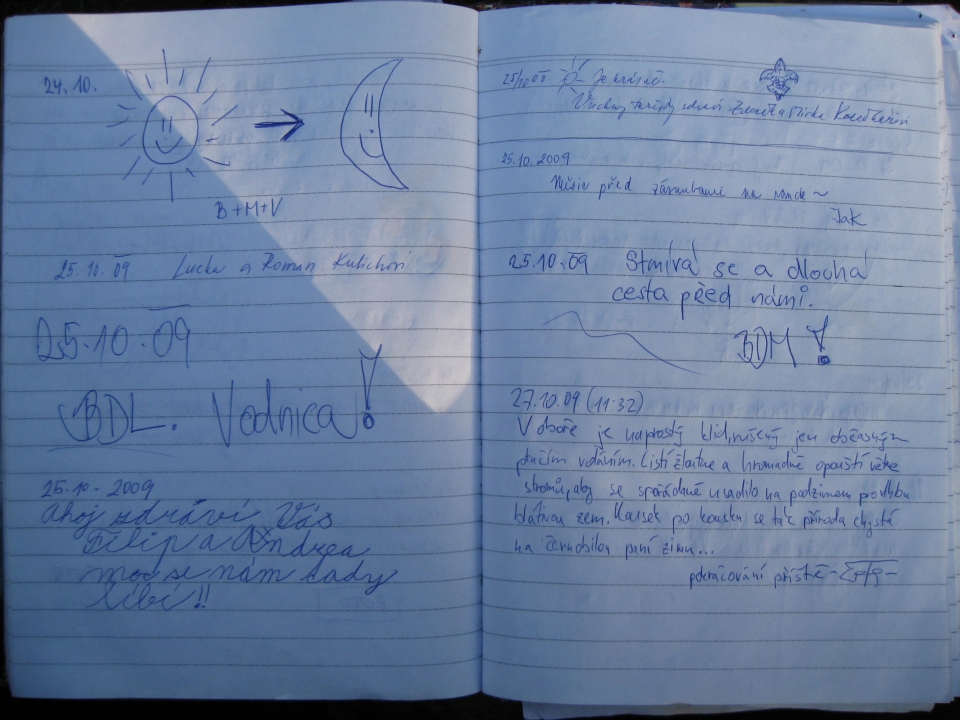 24.10.
B+M+V
25.10.09 Lucka a Roman
25.10.09
BDL. Vodnica!
25.10.2009
Ahoj zdraví Vás
Filip a Andrea
moc se nám tady
líbí!!
25/10 09 Je krásně.
Všechny zdraví Zdeněk a Mirka
25.10.2009
před na
Jak
25.10.09 Stmívá se a dlouhá
cesta před námi.
BDM!
27.10.09 (11:32)
V oboře je naprostý klid, rušený jen občasným
ptačím voláním. Listí žloutne a hromadně opouští větve
stromů, aby se spořádaně usadilo na podzimem
blátivou zem. Kousek po kousku se tak příroda chystá
na černobílou paní zimu...
pokračování příště